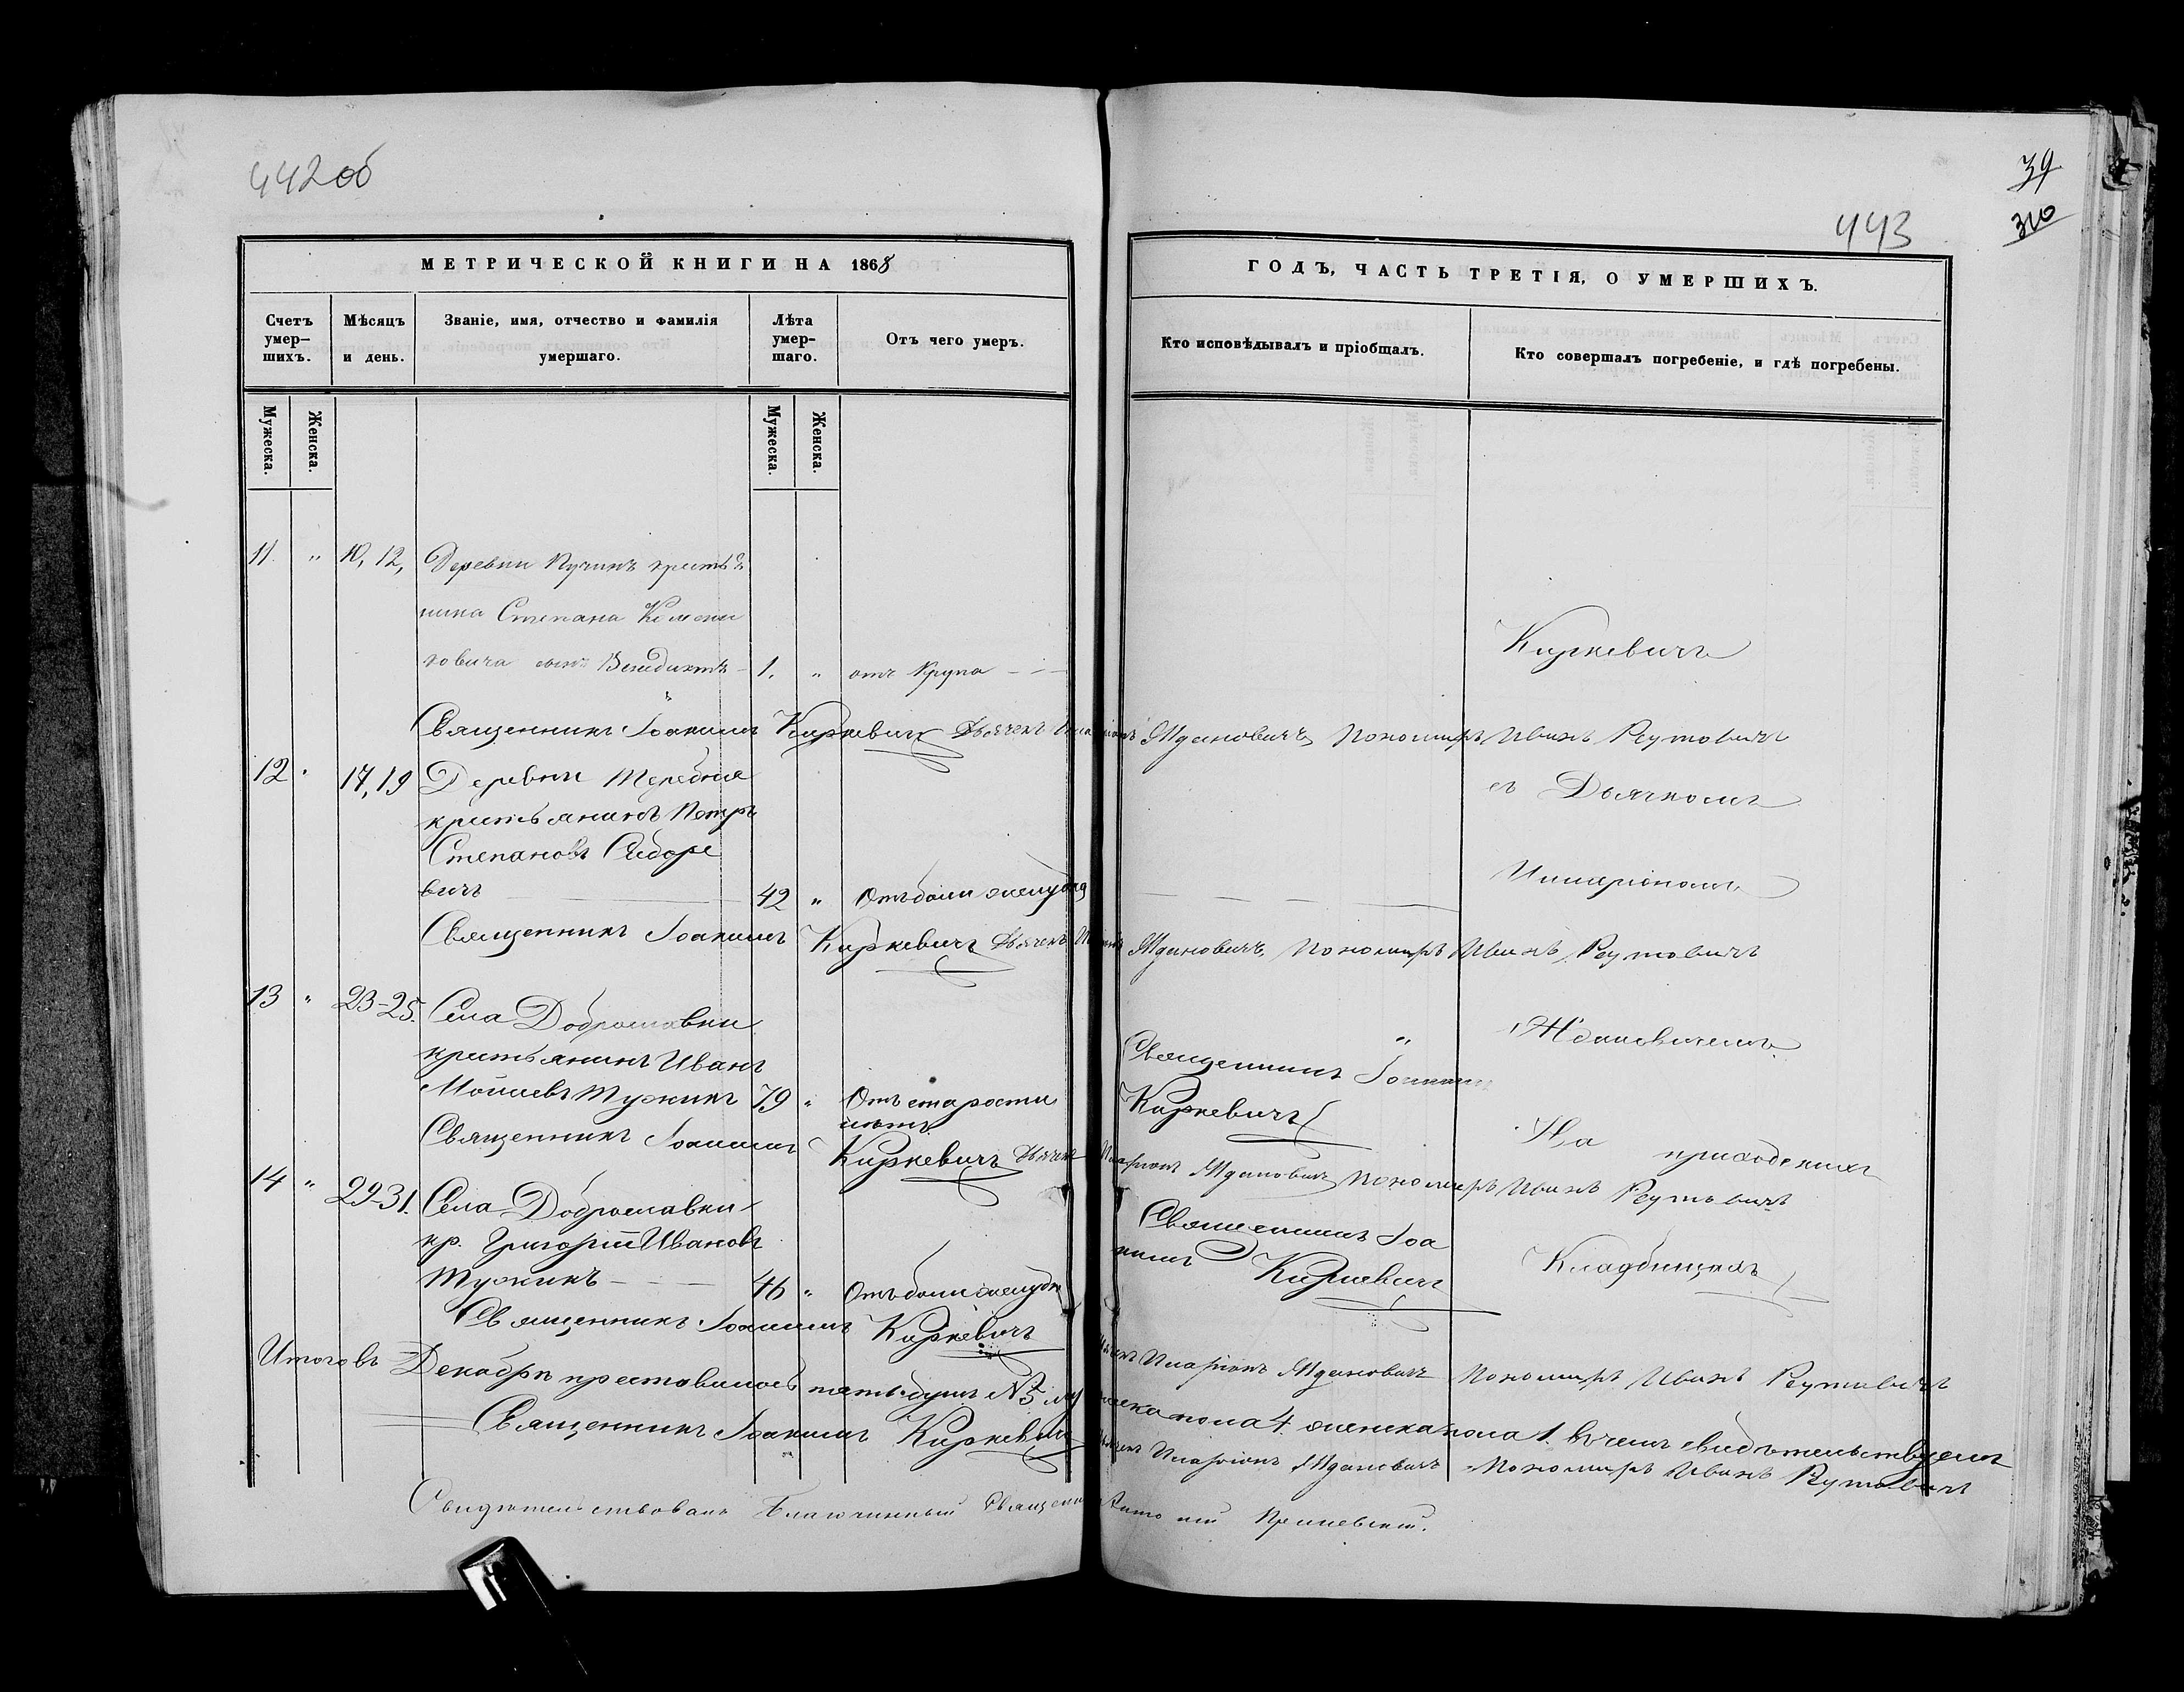 442об
39
310
443
МЕТРИЧЕСКОЙ КНИГИ НА 1868
ГОДЪ, ЧАСТЬ ТРЕТІЯ, О УМЕРШИХЪ.
Счетъ умер-шихъ.
Мѣсяцъ и день.
Званіе, имя, отчество и фамилія умершаго.
Лѣта умер-шаго.
Отъ чего умеръ.
Кто исповѣдывалъ и пріобщалъ.
Кто совершалъ погребеніе, и гдѣ погребены.
Мужеска.
Женска.
Мужеска.
Женска.
11 " 10, 12, Деревни крестья
нина Степана
ровича сынъ Венедиктъ 1. " отъ Крупа
Киркевичъ
Священникъ Іоакимъ Киркевичъ Дьячекъ Иларіонъ Ждановичъ Пономарь Иванъ Реутовичъ
12 " 17, 19 Деревни Теребня
крестьянинъ Петръ
Степановъ Сидоре
вичъ 42 " Отъ боли желудка
съ Дьячкомъ
Иларіономъ
Священникъ Іоакимъ Киркевичъ Дьячекъ Ждановичъ, Пономарь Иванъ Реутовичъ
13 " 23-25. Села Доброславки
крестьянинъ Иванъ
Мойсіевъ Тужикъ 79 " Отъ старости
лѣтъ
Священникъ Іоакимъ
Киркевичъ
Ждановичемъ
Священникъ Іоакимъ Киркевичъ Дьячекъ Иларіонъ Ждановичъ Пономарь Иванъ Реутовичъ
На приходскихъ
14 " 29-31. Села Доброславки
кр. Григорій Ивановъ
Тужикъ 46 " Отъ боли желудка
Священникъ Іоа
кимъ Киркевичъ
Кладбищахъ
Священникъ Іоакимъ Киркевичъ
Дьячекъ Иларіонъ Ждановичъ Пономарь Иванъ Реутовичъ
Итого въ Декабрѣ преставилось пять душъ №5 мужеска пола 4. женска пола 1. въ чемъ свидѣтельствуемъ
Священникъ Іоакимъ Киркевичъ Дьячекъ Иларіонъ Ждановичъ Пономарь Иванъ Реутовичъ
Свидѣтельствовалъ Благочинный Священникъ Антоній